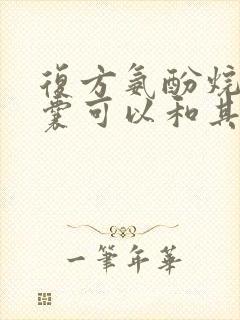 復方氨酚烷
囊可以和其
一筆年華